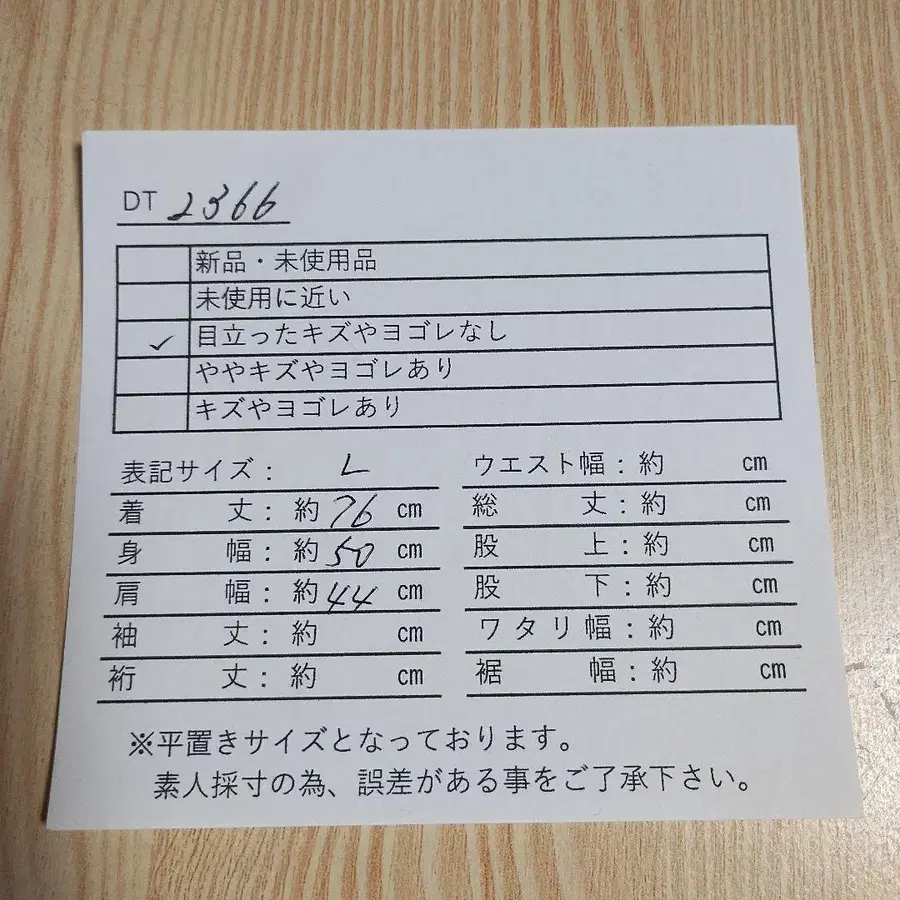 DT 2366
新品・未使用品
未使用に近い
✓ 目立ったキズやヨゴレなし
ややキズやヨゴレあり
キズやヨゴレあり
表記サイズ： L
着丈：約76cm
身幅：約50cm
肩幅：約44cm
袖丈：約 cm
裄丈：約 cm
ウエスト幅：約 cm
総丈：約 cm
股上：約 cm
股下：約 cm
ワタリ幅：約 cm
裾幅：約 cm
※平置きサイズとなっております。
素人採寸の為、誤差がある事をご了承下さい。